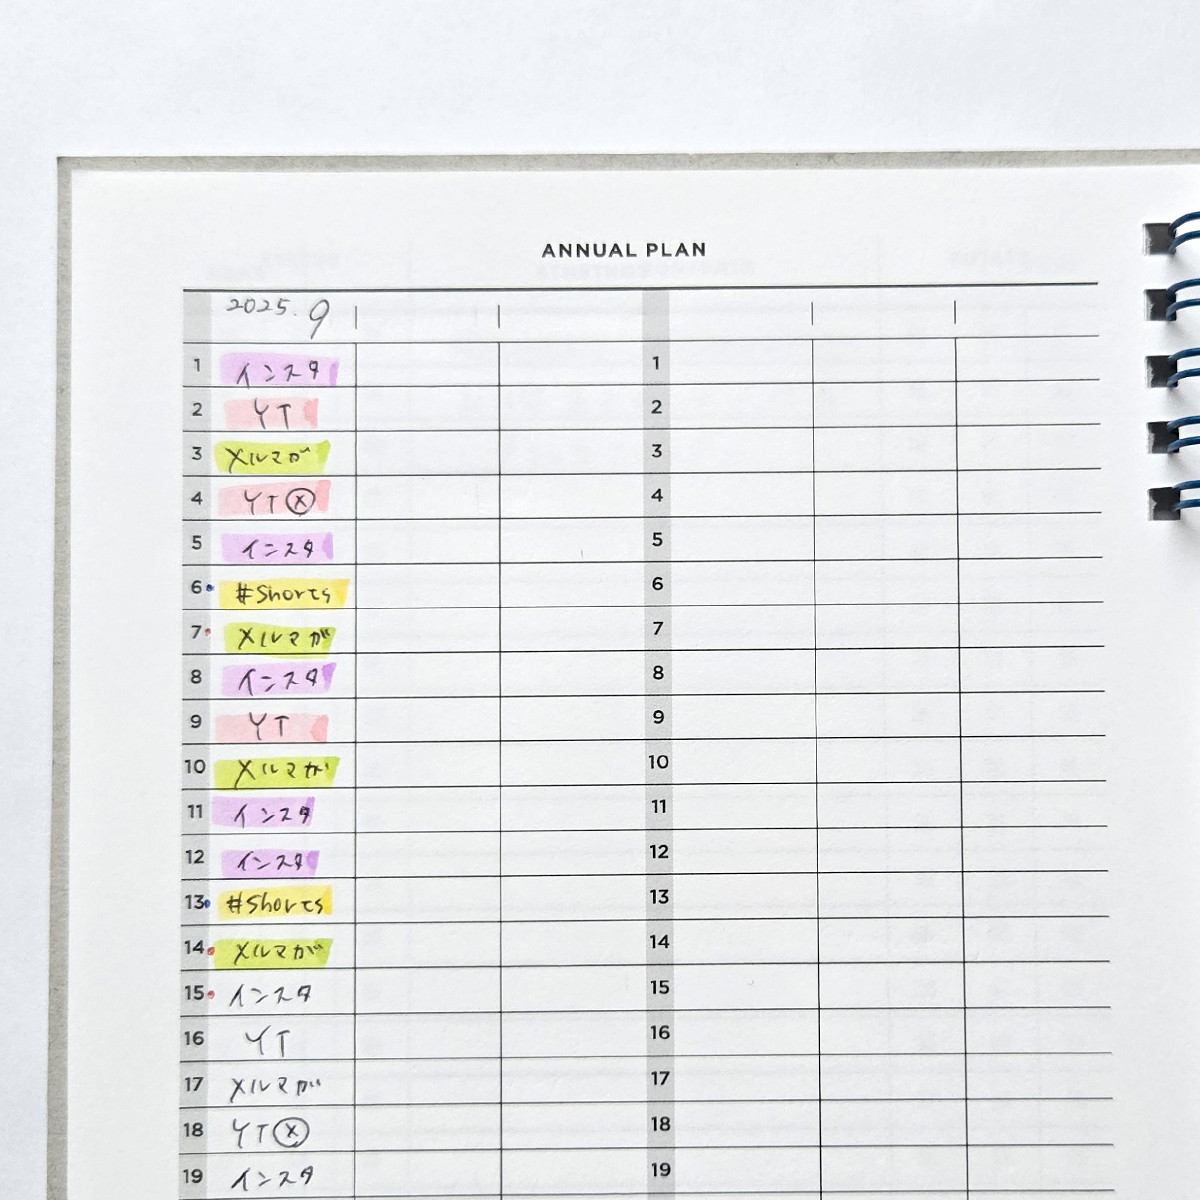 ANNUAL PLAN
2025. 9
1 インスタ 1
2 YT 2
3 メルマガ 3
4 YT ⓧ 4
5 インスタ 5
6 #Shorts 6
7 メルマガ 7
8 インスタ 8
9 YT 9
10 メルマガ 10
11 インスタ 11
12 インスタ 12
13 #Shorts 13
14 メルマガ 14
15 インスタ 15
16 YT 16
17 メルマガ 17
18 YT ⓧ 18
19 インスタ 19